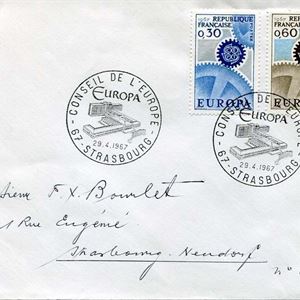 1967 RÉPUBLIQUE FRANÇAISE
0,30
EUROPA
RÉPUBLIQUE FRANÇAISE
0,60
EUROPA
CONSEIL DE L'EUROPE
EUROPA
29.4.1967
67-STRASBOURG
CONSEIL DE L'EUROPE
EUROPA
29.4.1967
67-STRASBOURG
F. X. Bourlet
1 Rue Eugénie
Strasbourg-Neudorf